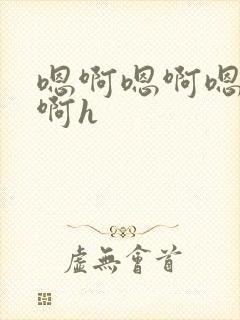 嗯啊嗯啊嗯
啊h
虚無會首